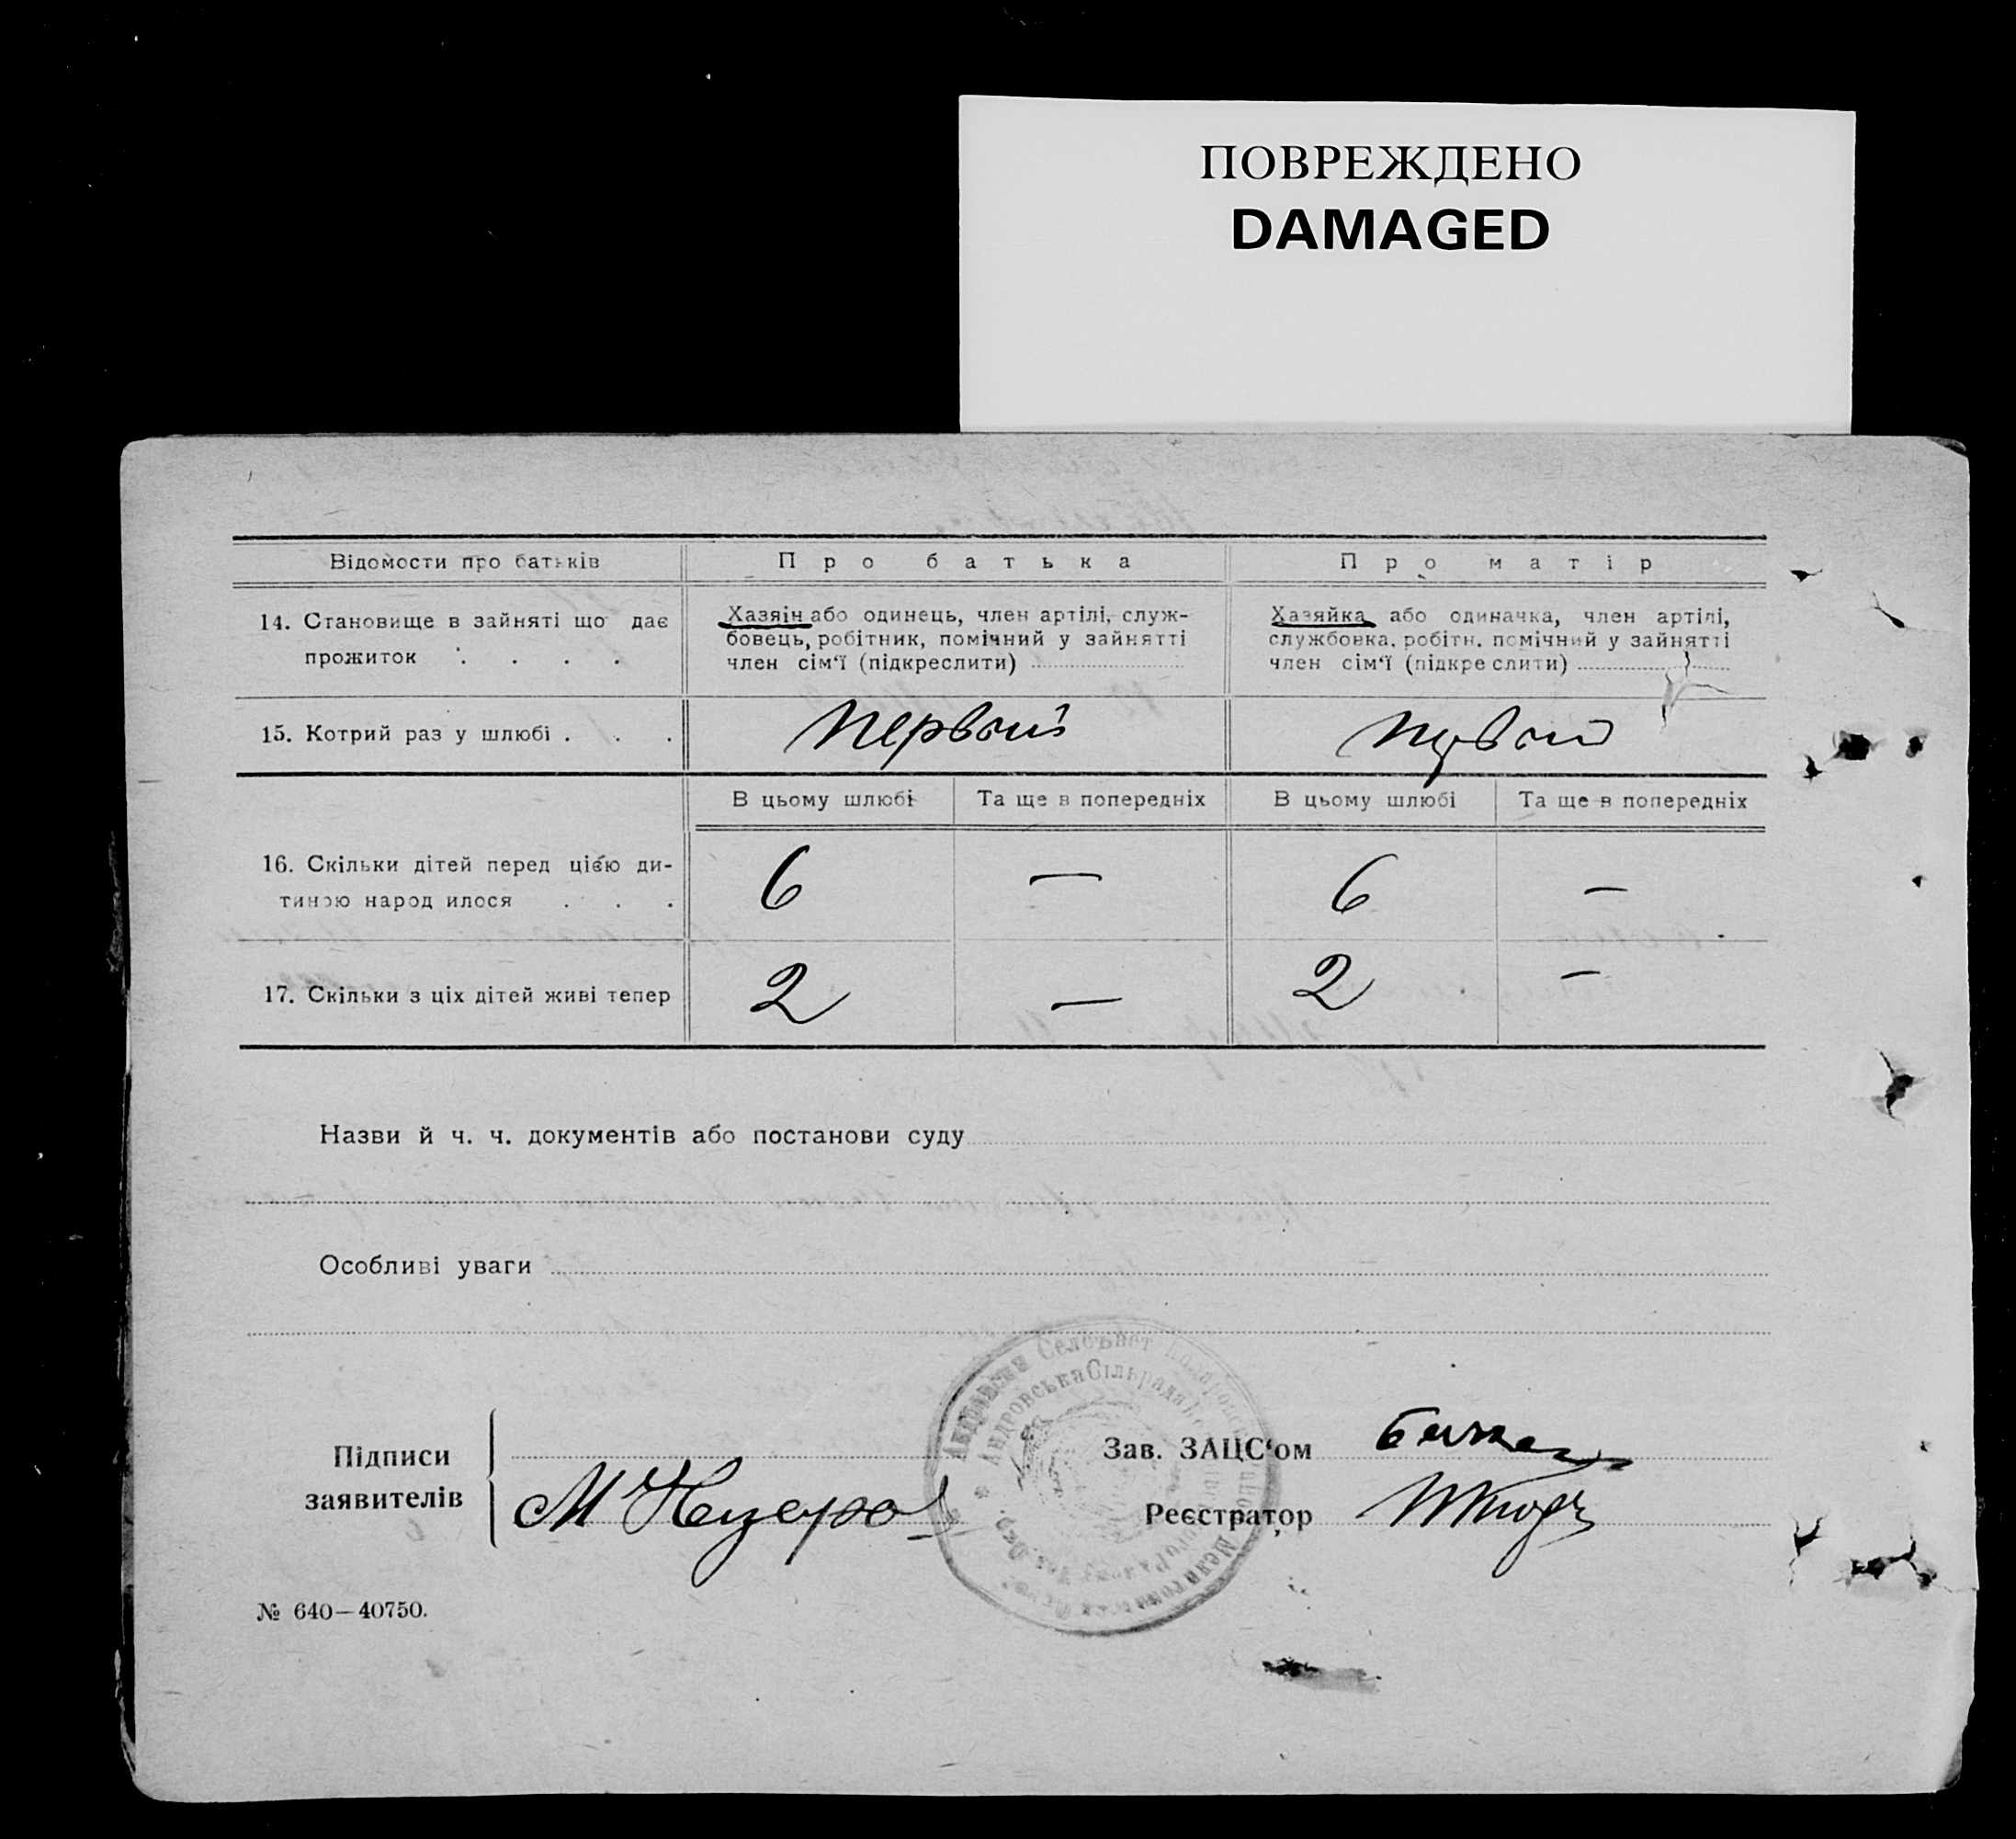 ПОВРЕЖДЕНО
DAMAGED
Відомости про батьків
Про батька
Про матір
14. Становище в зайняті що дає
прожиток . . . .
Хазяін або одинець, член артілі, служ-
бовець, робітник, помічний у зайнятті
член сім‘ї (підкреслити)
Хазяйка або одиначка, член артілі,
службовка, робітн. помічний у зайнятті
член сім‘ї (підкре слити)
15. Котрий раз у шлюбі . . .
Первый
Первый
В цьому шлюбі
Та ще в попередніх
В цьому шлюбі
Та ще в попередніх
16. Скільки дітей перед цією ди-
тиною народ илося . . .
6
—
6
—
17. Скільки з ціх дітей живі тепер
2
—
2
—
Назви й ч. ч. документів або постанови суду
Особливі уваги
Підписи
заявителів
М
Зав. ЗАЦС‘ом
Реєстратор
Сельсовет
Андровська Сільрада
№ 640—40750.